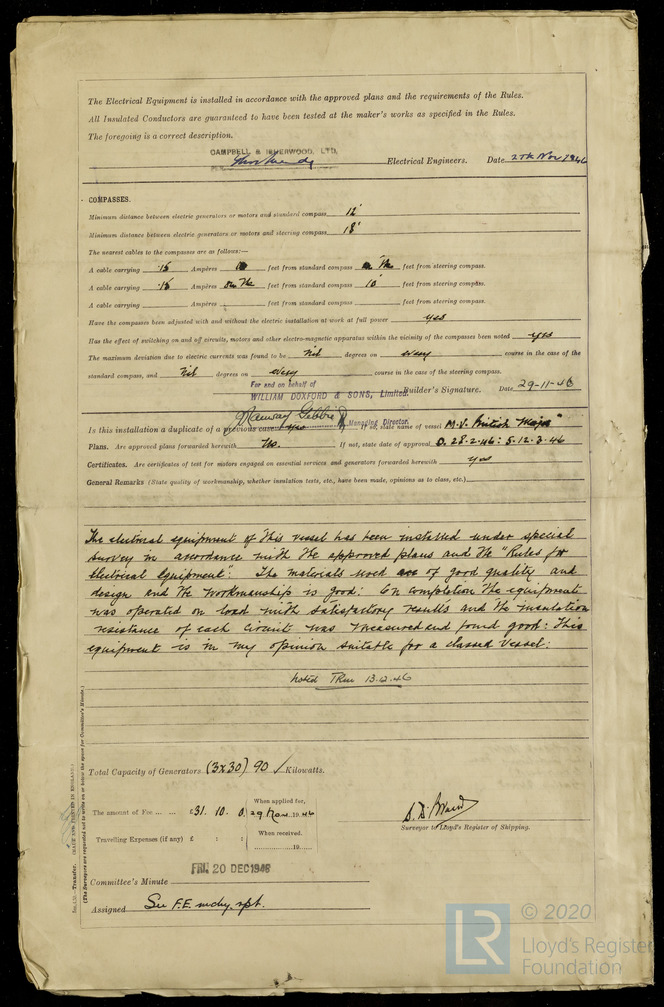 The Electrical Equipment is installed in accordance with the approved plans and the requirements of the Rules.
All Insulated Conductors are guaranteed to have been tested at the maker's works as specified in the Rules.
The foregoing is a correct description.
CAMPBELL & ISHERWOOD, LTD.
Electrical Engineers. Date 27th Nov 1946
COMPASSES.
Minimum distance between electric generators or motors and standard compass 12'
Minimum distance between electric generators or motors and steering compass 18'
The nearest cables to the compasses are as follows:—
A cable carrying .15 Ampères feet from standard compass on the feet from steering compass.
A cable carrying .15 Ampères on the feet from standard compass 10' feet from steering compass.
A cable carrying Ampères feet from standard compass feet from steering compass.
Have the compasses been adjusted with and without the electric installation at work at full power yes
Has the effect of switching on and off circuits, motors and other electro-magnetic apparatus within the vicinity of the compasses been noted yes
The maximum deviation due to electric currents was found to be Nil degrees on every course in the case of the
standard compass, and Nil degrees on every course in the case of the steering compass.
For and on behalf of
WILLIAM DOXFORD & SONS, Limited. Builder's Signature. Date 29-11-46
Managing Director.
Is this installation a duplicate of a previous case yes If so, state name of vessel M.V. "British Major"
Plans. Are approved plans forwarded herewith No. If not, state date of approval D. 28-2-46: S. 12-3-46
Certificates. Are certificates of test for motors engaged on essential services and generators forwarded herewith yes
General Remarks (State quality of workmanship, whether insulation tests, etc., have been made, opinions as to class, etc.)
The electrical equipment of this vessel has been installed under special
survey in accordance with the approved plans and the "Rules for
Electrical Equipment". The materials used are of good quality and
design and the workmanship is good: On completion the equipment
was operated on load with satisfactory results and the insulation
resistance of each circuit was measured and found good: This
equipment is in my opinion suitable for a classed vessel:
Noted 13.12.46
Total Capacity of Generators (3x30) 90 Kilowatts.
The amount of Fee ... ... £31. 10. 0. When applied for, 29 Nov. 1946
Travelling Expenses (if any) £ : : When received, 19
Surveyor to Lloyd's Register of Shipping.
FRI. 20 DEC 1946
Committee's Minute
Assigned See F.E. mchy. rpt.
(The Surveyors are requested not to write on or below the space for Committee's Minute.)
© 2020
LR
Lloyd's Register
Foundation